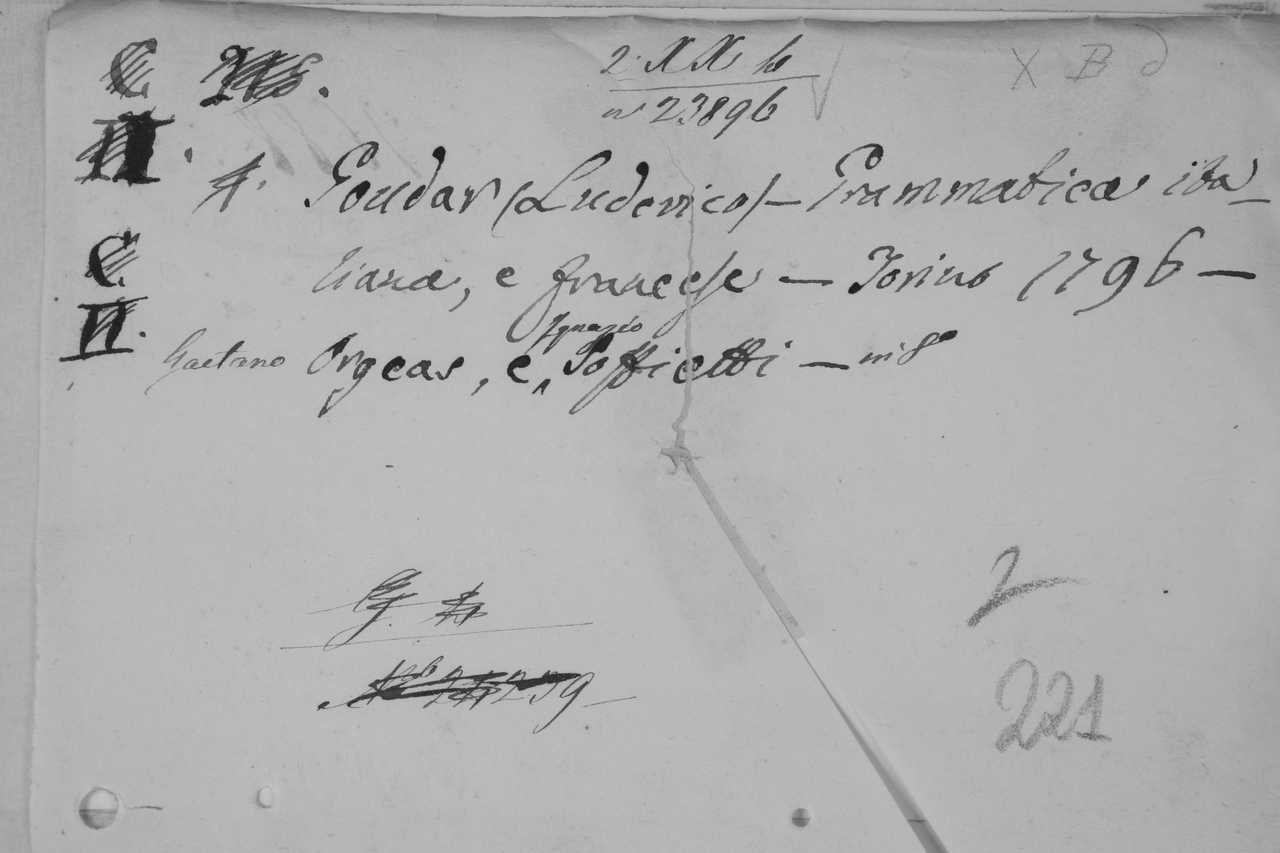 2. XX b
n° 23896
X B d
C
II.
A. Goudar (Luderico) – Grammatica ita–
liana, e francese – Torino 1796 –
C.
II.
Gaetano Orgeas, e Ignazio Soffietti – in 8°
2
221